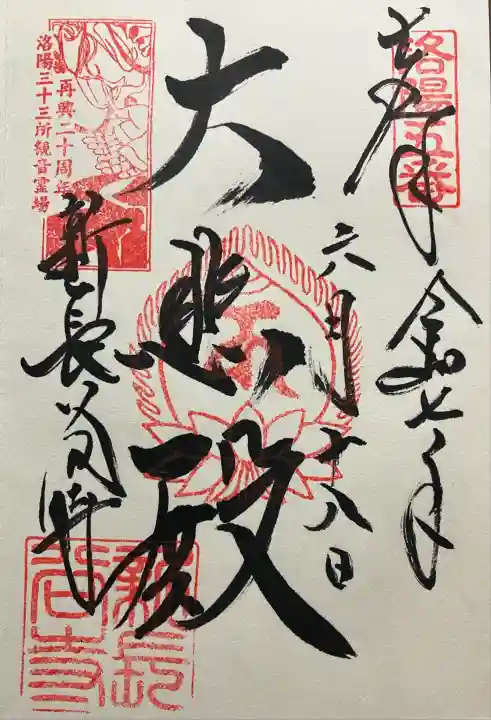 洛陽五番
奉拝
令和七年
六月十八日
大悲殿
再興二十周年
洛陽三十三所観音霊場
新長谷寺
新長谷寺